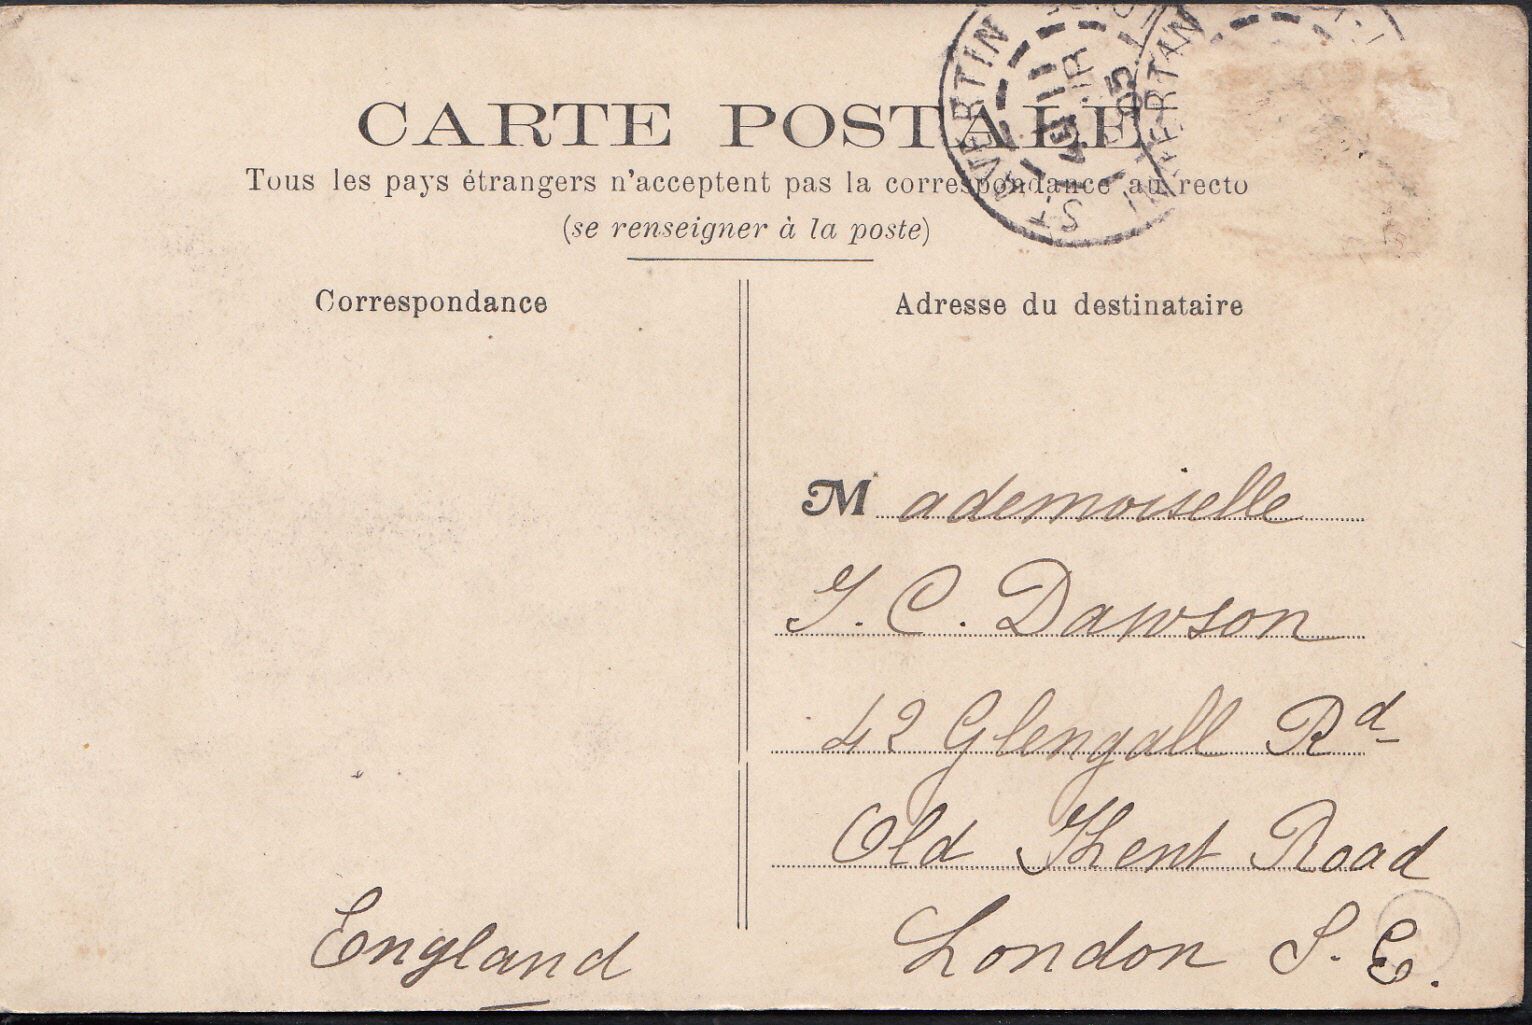 CARTE POSTALE
Tous les pays étrangers n'acceptent pas la correspondance au recto
(se renseigner à la poste)
Correspondance
Adresse du destinataire
ST AVERTIN
05
Mademoiselle
C. Dawson
42 Glengall Rd
Old Kent Road
London S. E.
England